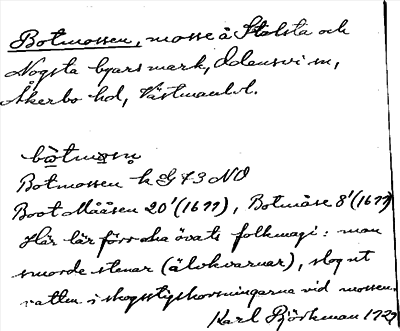 Botmossen, mosse å Stalsta och
Nogsta byars mark, Odensvi sn,
Åkerbo hd, Västmanl. l.
Botmossen h G 43 NO
Boot Mååsen 20' (1699), Botmåse 8' (1699)
Här lär förr ha övats folkmagi: man
smorde stenar (älvkvarnar), slog ut
vatten i skogsstigskorsningarna vid mossen.
Karl Björkman